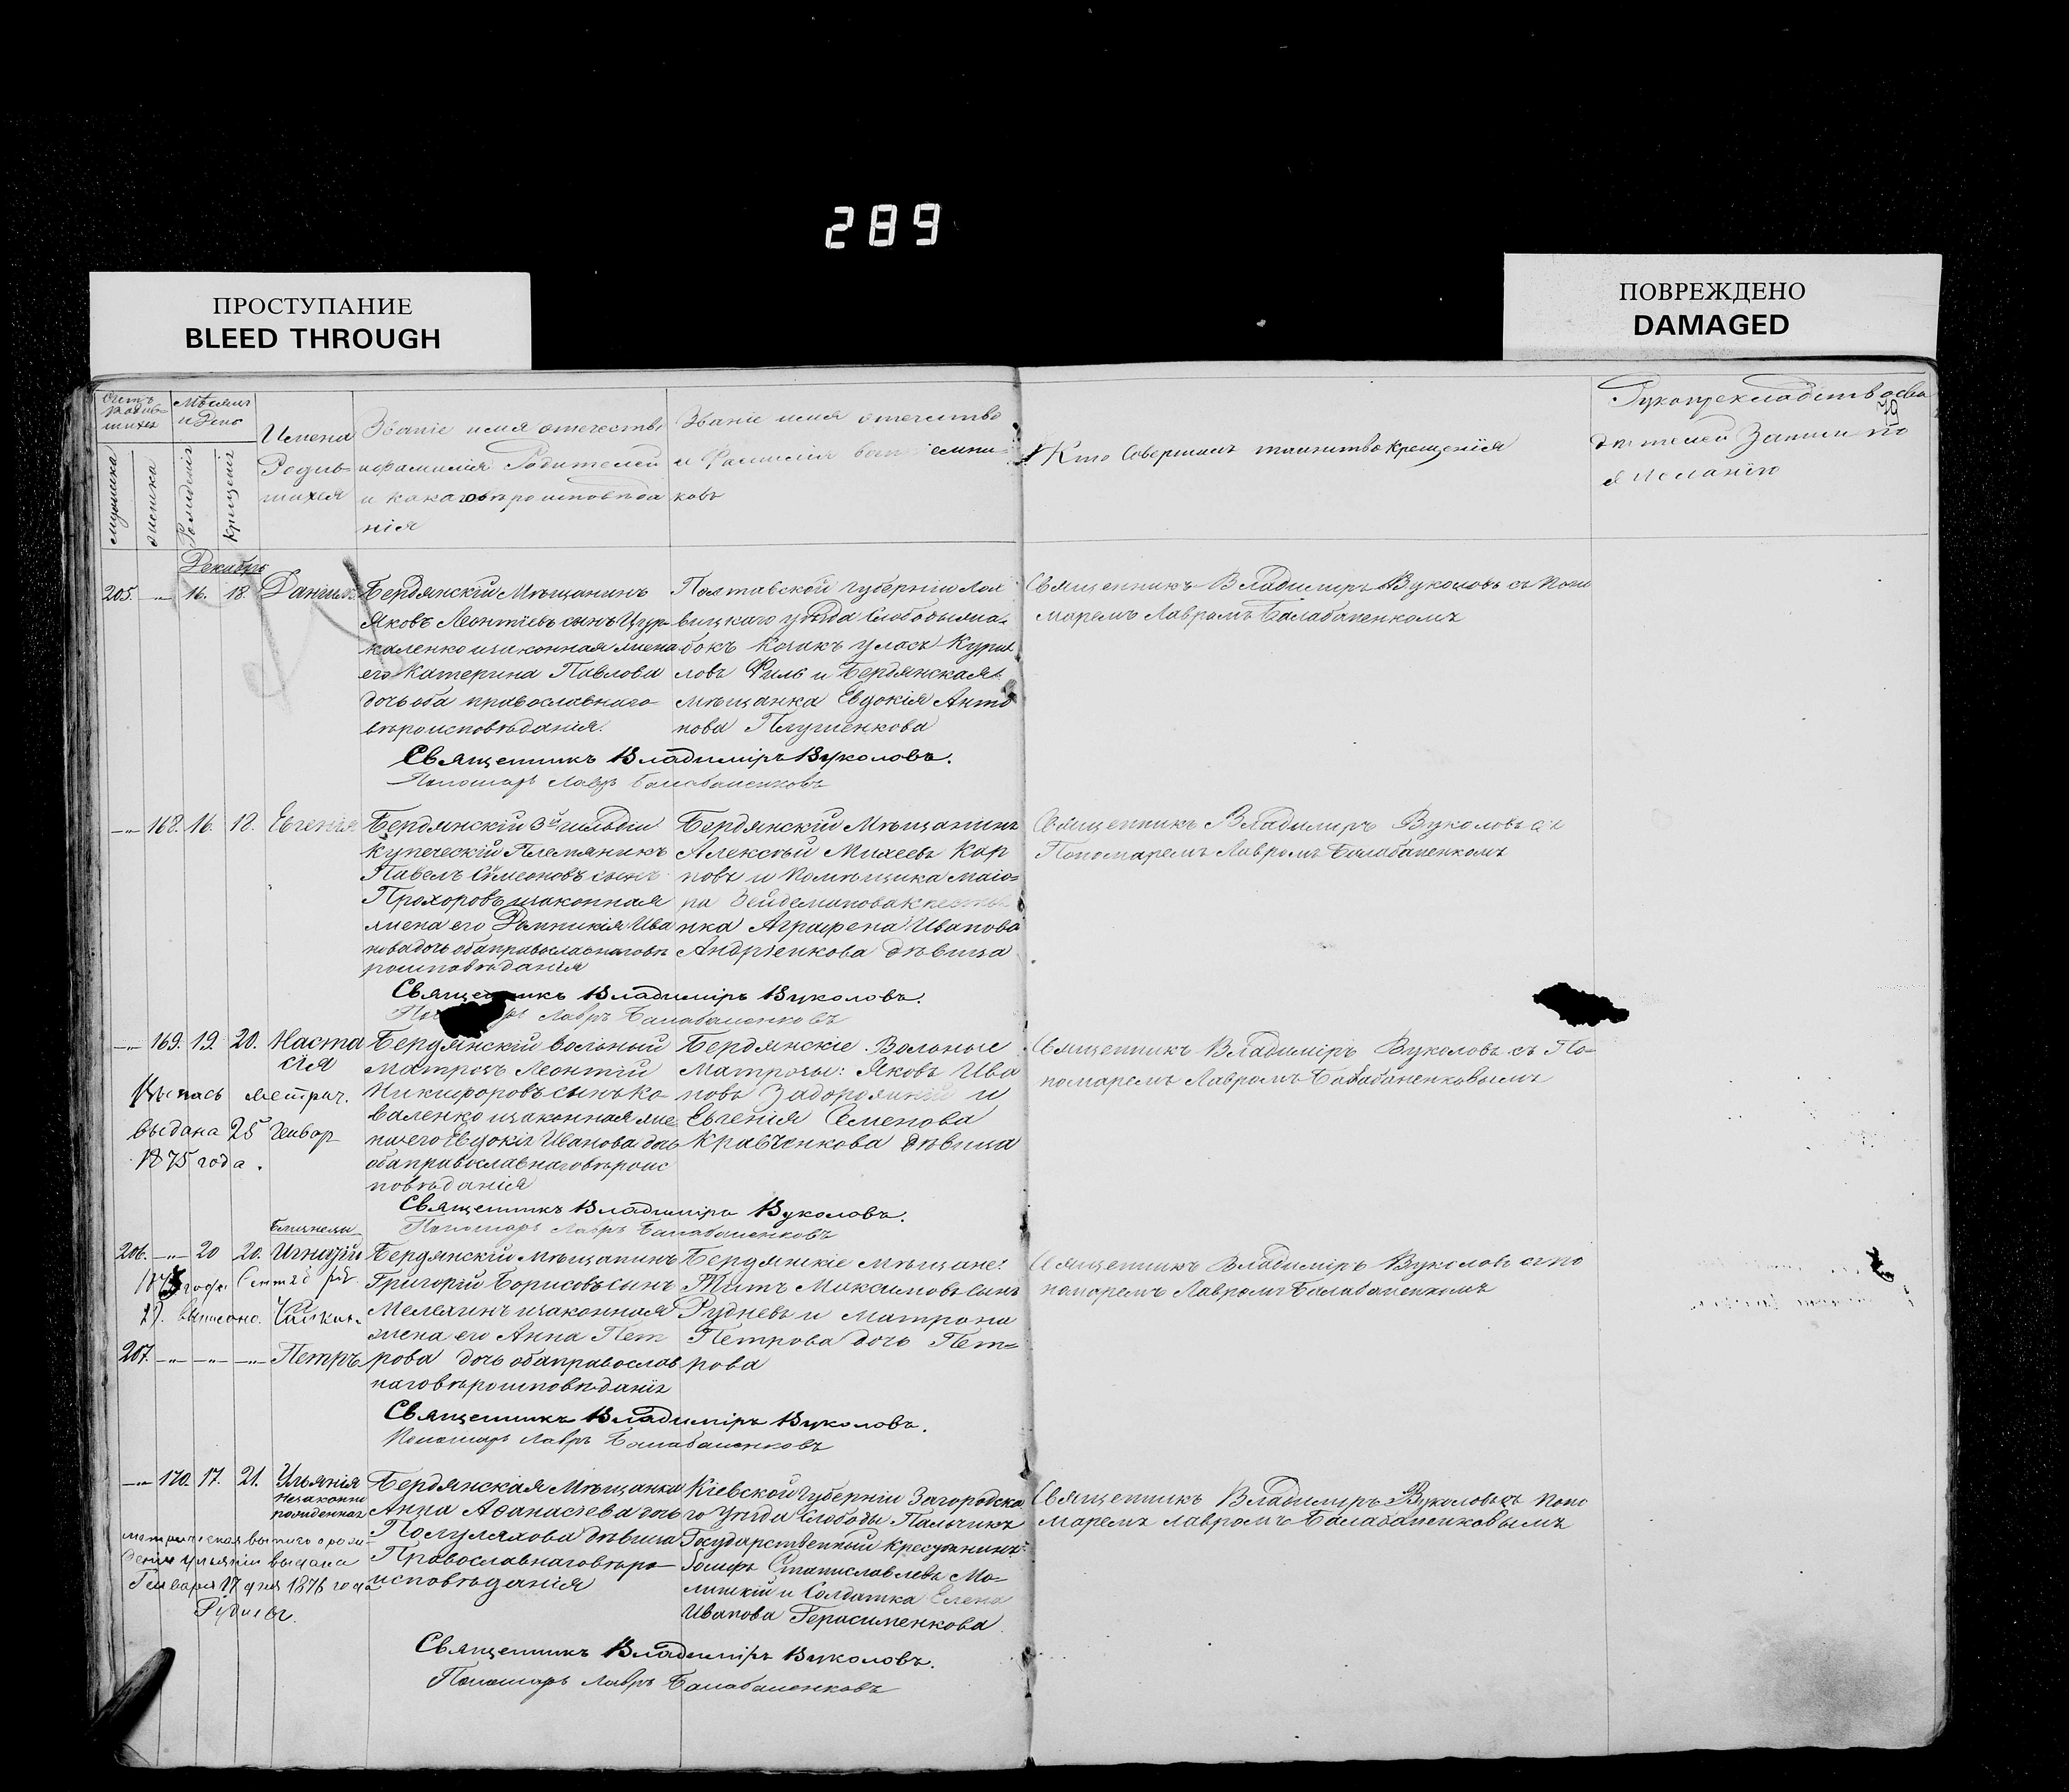 289
ПРОСТУПАНИЕ
BLEED THROUGH
ПОВРЕЖДЕНО
DAMAGED
Счетъ родив-шихся
Мѣсяцъ и День
мужеска
женска
Рожденія
Крещенія
Имена Родив-шихся
Званіе имя отечество
и фамилія Родителей
и какаго вѣроисповѣда
нія
Званіе имя отечество
и Фамилія
ковъ
Кто Совершалъ таинство Крещенія
Рукоприкладство
дѣтелей Записи по
желанію
Декабрь
205. 16. 18. Даніилъ
Бердянскій Мѣщанинъ
Яковъ Леонтіевъ сынъ
и законная жена
его Катерина Павлова
дочь оба православнаго
вѣроисповѣданія.
Полтавской Губерніи Лох
вицкаго уѣзда
Козакъ Уласъ
и Бердянская
мѣщанка Евдокія Анто
нова
Священникъ Владимиръ Вуколовъ съ Поно
маремъ Лавромъ Балабаненкомъ
Священникъ Владиміръ Вуколовъ.
Пономарь Лавръ Балабаненковъ
168. 16. 18. Евгенія
Бердянскій 3й гильдіи
Купеческій Племяникъ
Павелъ Симеоновъ сынъ
Прохоровъ и законная
жена его Домникія Ива
нова дочь оба православнаго вѣ
роисповѣданія
Бердянскій Мѣщанинъ
Алексѣй Михеевъ Кар
повъ и Помѣщика Маіо-
ра
нка Аграфена Иванова
Андріенкова дѣвица
Священникъ Владимиръ Вуколовъ съ
Пономаремъ Лавромъ Балабаненкомъ
Священникъ Владиміръ Вуколовъ.
Лавръ Балабаненковъ
169. 19. 20. Наста
сія
Бердянскій Вольный
Матрозъ Леонтій
Никифоровъ сынъ Ко-
валенко и законная же
на его Евдокія Иванова дочь
оба православнаго вѣроис
повѣданія
Бердянскіе Вольные
Матрозы: Яковъ Ива
новъ Задорожный и
Евгенія Семенова
Кравченкова дѣвица
Священникъ Владиміръ Вуколовъ съ По-
номаремъ Лавромъ Балабаненковымъ
Выпись метрич.
выдана 25 Генвар
1875 года.
Священникъ Владиміръ Вуколовъ.
Пономарь Лавръ Балабаненковъ
Близнецы
206. 20 20. Игнатій
Бердянскій Мѣщанинъ
Григорій Борисовъ сынъ
Мелехинъ и законная
жена его Анна Пет
207. Петръ
рова дочь оба православ
наго вѣроисповѣданія
Бердянскіе мѣщане:
Титъ Максимовъ сынъ
Рудневъ и Матрона
Петрова дочь Пет-
рова
Священникъ Владиміръ Вуколовъ съ по
номаремъ Лавромъ Балабаненкомъ
Священникъ Владиміръ Вуколовъ.
Пономарь Лавръ Балабаненковъ
170. 17. 21. Ульянія
Незаконно
рожденная
Бердянская Мѣщанка
Анна Аѳанасіева дочь
Полуляхова дѣвица
Православнаго вѣро-
исповѣданія
Кіевской Губерніи
го Уѣзда Слободы Пальчикъ
Государственный Крестьянинъ
Станиславлевъ
и Солдатка Елена
Иванова Герасименкова
Священникъ Владимиръ Вуколовъ съ Поно
маремъ Лавромъ Балабаненковымъ
выдана
Генваря 17 дня 1876 года
Рудневъ.
Священникъ Владиміръ Вуколовъ.
Пономарь Лавръ Балабаненковъ